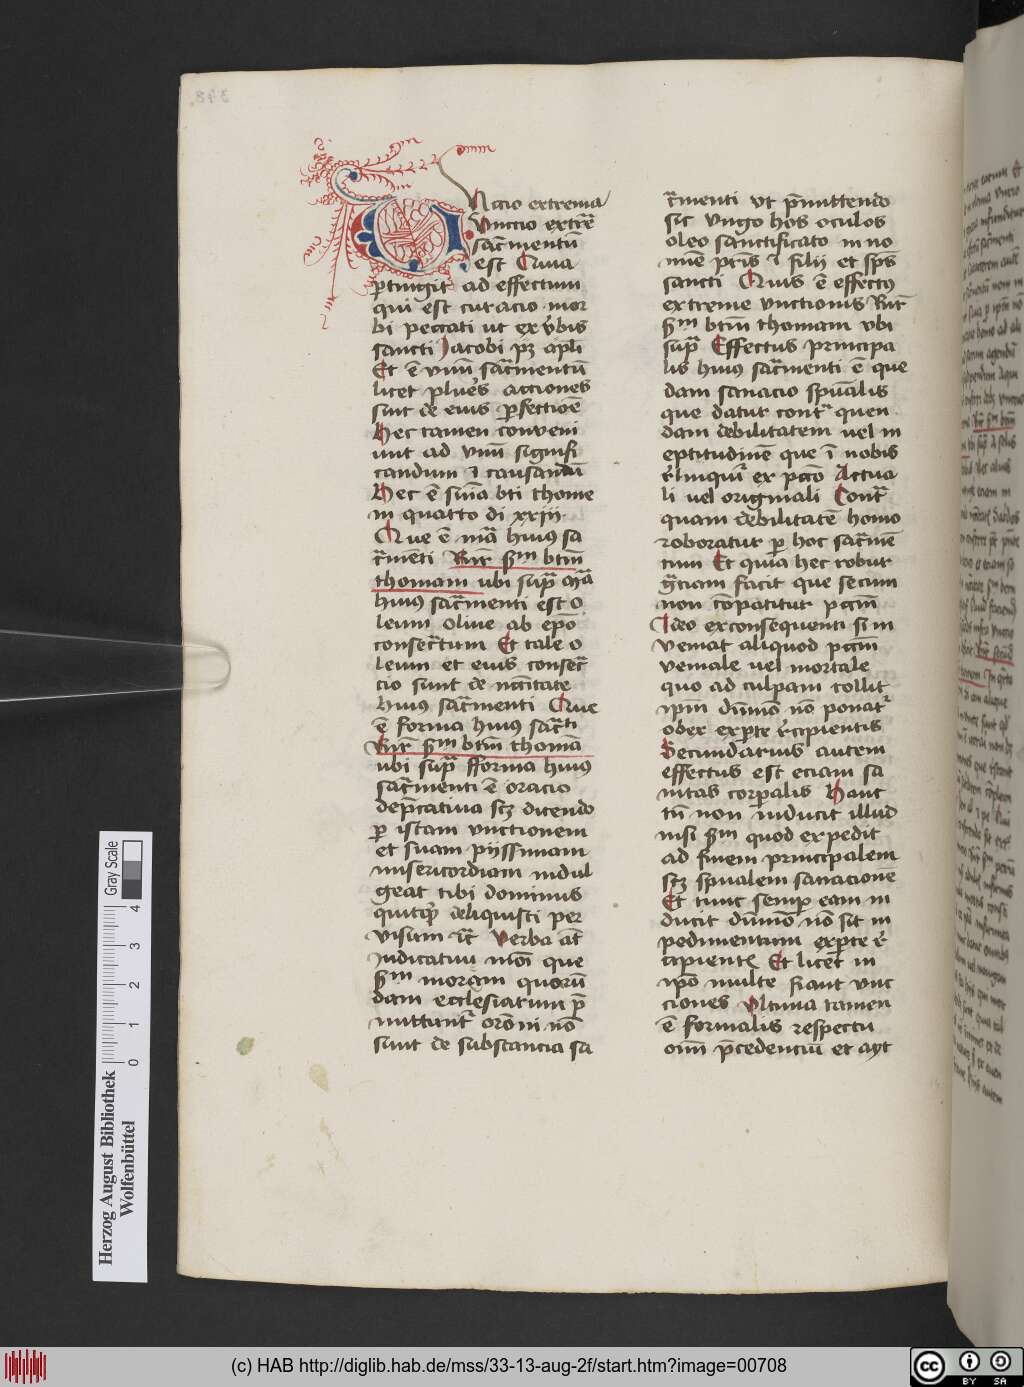 398.
Unctio extrema
Vnctio extre͞
sac͞rmentu͞
est Quia
p̲tingit ad effectum
qui est curacio mor
bi peccati ut ex v͛bis
sancti Jacobi pꝫ apl̄i
Et e͞ vnu͞ sac͞rmentu͞
licet plures acciones
sint de eius p̲fectio͞e
Hec tamen conveni
unt ad vnu͞ signifi
candum ⁊ causandu͞
Hec e͞ sn͞ia bt͞i thome
in quarto di xxiij.
Que e͞ ma͞ huius sa
c͞rme͞ti Rn͞r sm͞ btm͞
thomam ubi sup͞ ma͞
huius sac͞rmenti est o
leum oliue ab ep͞o
consec͞rtum Et tale o
leum et eius consec͞r
cio sunt de nc͞citate
huius sac͞rmenti Que
e͞ forma huius sac͞rti
Rn͞r sm͞ btm͞ thoma͞
ubi sup͞ fforma huius
sac͞rmenti e͞ oracio
dep͞catiua scꝫ dicendo
p̲ istam vnctionem
et suam pijssimam
misericordiam indul
geat tibi dominus
quitq͞d deliquisti per
visum ⁊c͞ Verba at͞
indicatiui mo͞i que
sm͞ morem quoru͞
dam ecclesiarum p͞
mittunt͛ oro͞ni no͞
sunt de substancia sa
c͞rmenti ut p͞mittendo
sic Vngo hos oculos
oleo sanctificato in no
mi͞e pr͞is ⁊ filij et sp͞s
sancti Quis e͞ effectꝰ
extreme vnctionis Rn͞r
sm͞ btm͞ thomam vbi
sup͞ Effectus principa
lis huiꝰ sac͞rmenti e͞ que
dam sanacio spu͞alis
que datur cont͛ quen
dam debilitatem uel in
eptitudine͞ que i͞ nobis
r͛linquit͛ ex pc͞co Actua
li uel originali Cont͛
quam debilitate͞ homo
roboratur p̲ hoc sac͞rme͞
tum Et quia hec robur
gr͞ciam facit que secum
non co͞patitur pccm͞
Ideo exconsequenti si in
veniat aliquod pccm͞
veniale uel mortale
quo ad culpam tollit
ip͞m du͞mo͞ no͞ ponat͛
obex ex p̲te r͛cipientis
Secundarius autem
effectus est eciam sa
nitas corp̲alis Hanc
tn͞ non inducit illud
nisi sm͞ quod expedit
ad finem principalem
scꝫ spu͞alem sanacione͞
Et tunc semp̲ eam in
ducit du͞mo͞ no͞ sit in
pedimentum ex p̲te r͛
cipientꝭ Et lice͞t in
ip͞o multe fiant vnc
ciones Vltima tamen
e͞ formalis respectu
om͞i p͞cedenciu͞ et ayt
Herzog August Bibliothek
Wolfenbüttel
0 1 2 3 4
Gray Scale
(c) HAB http://diglib.hab.de/mss/33-13-aug-2f/start.htm?image=00708
cc BY SA